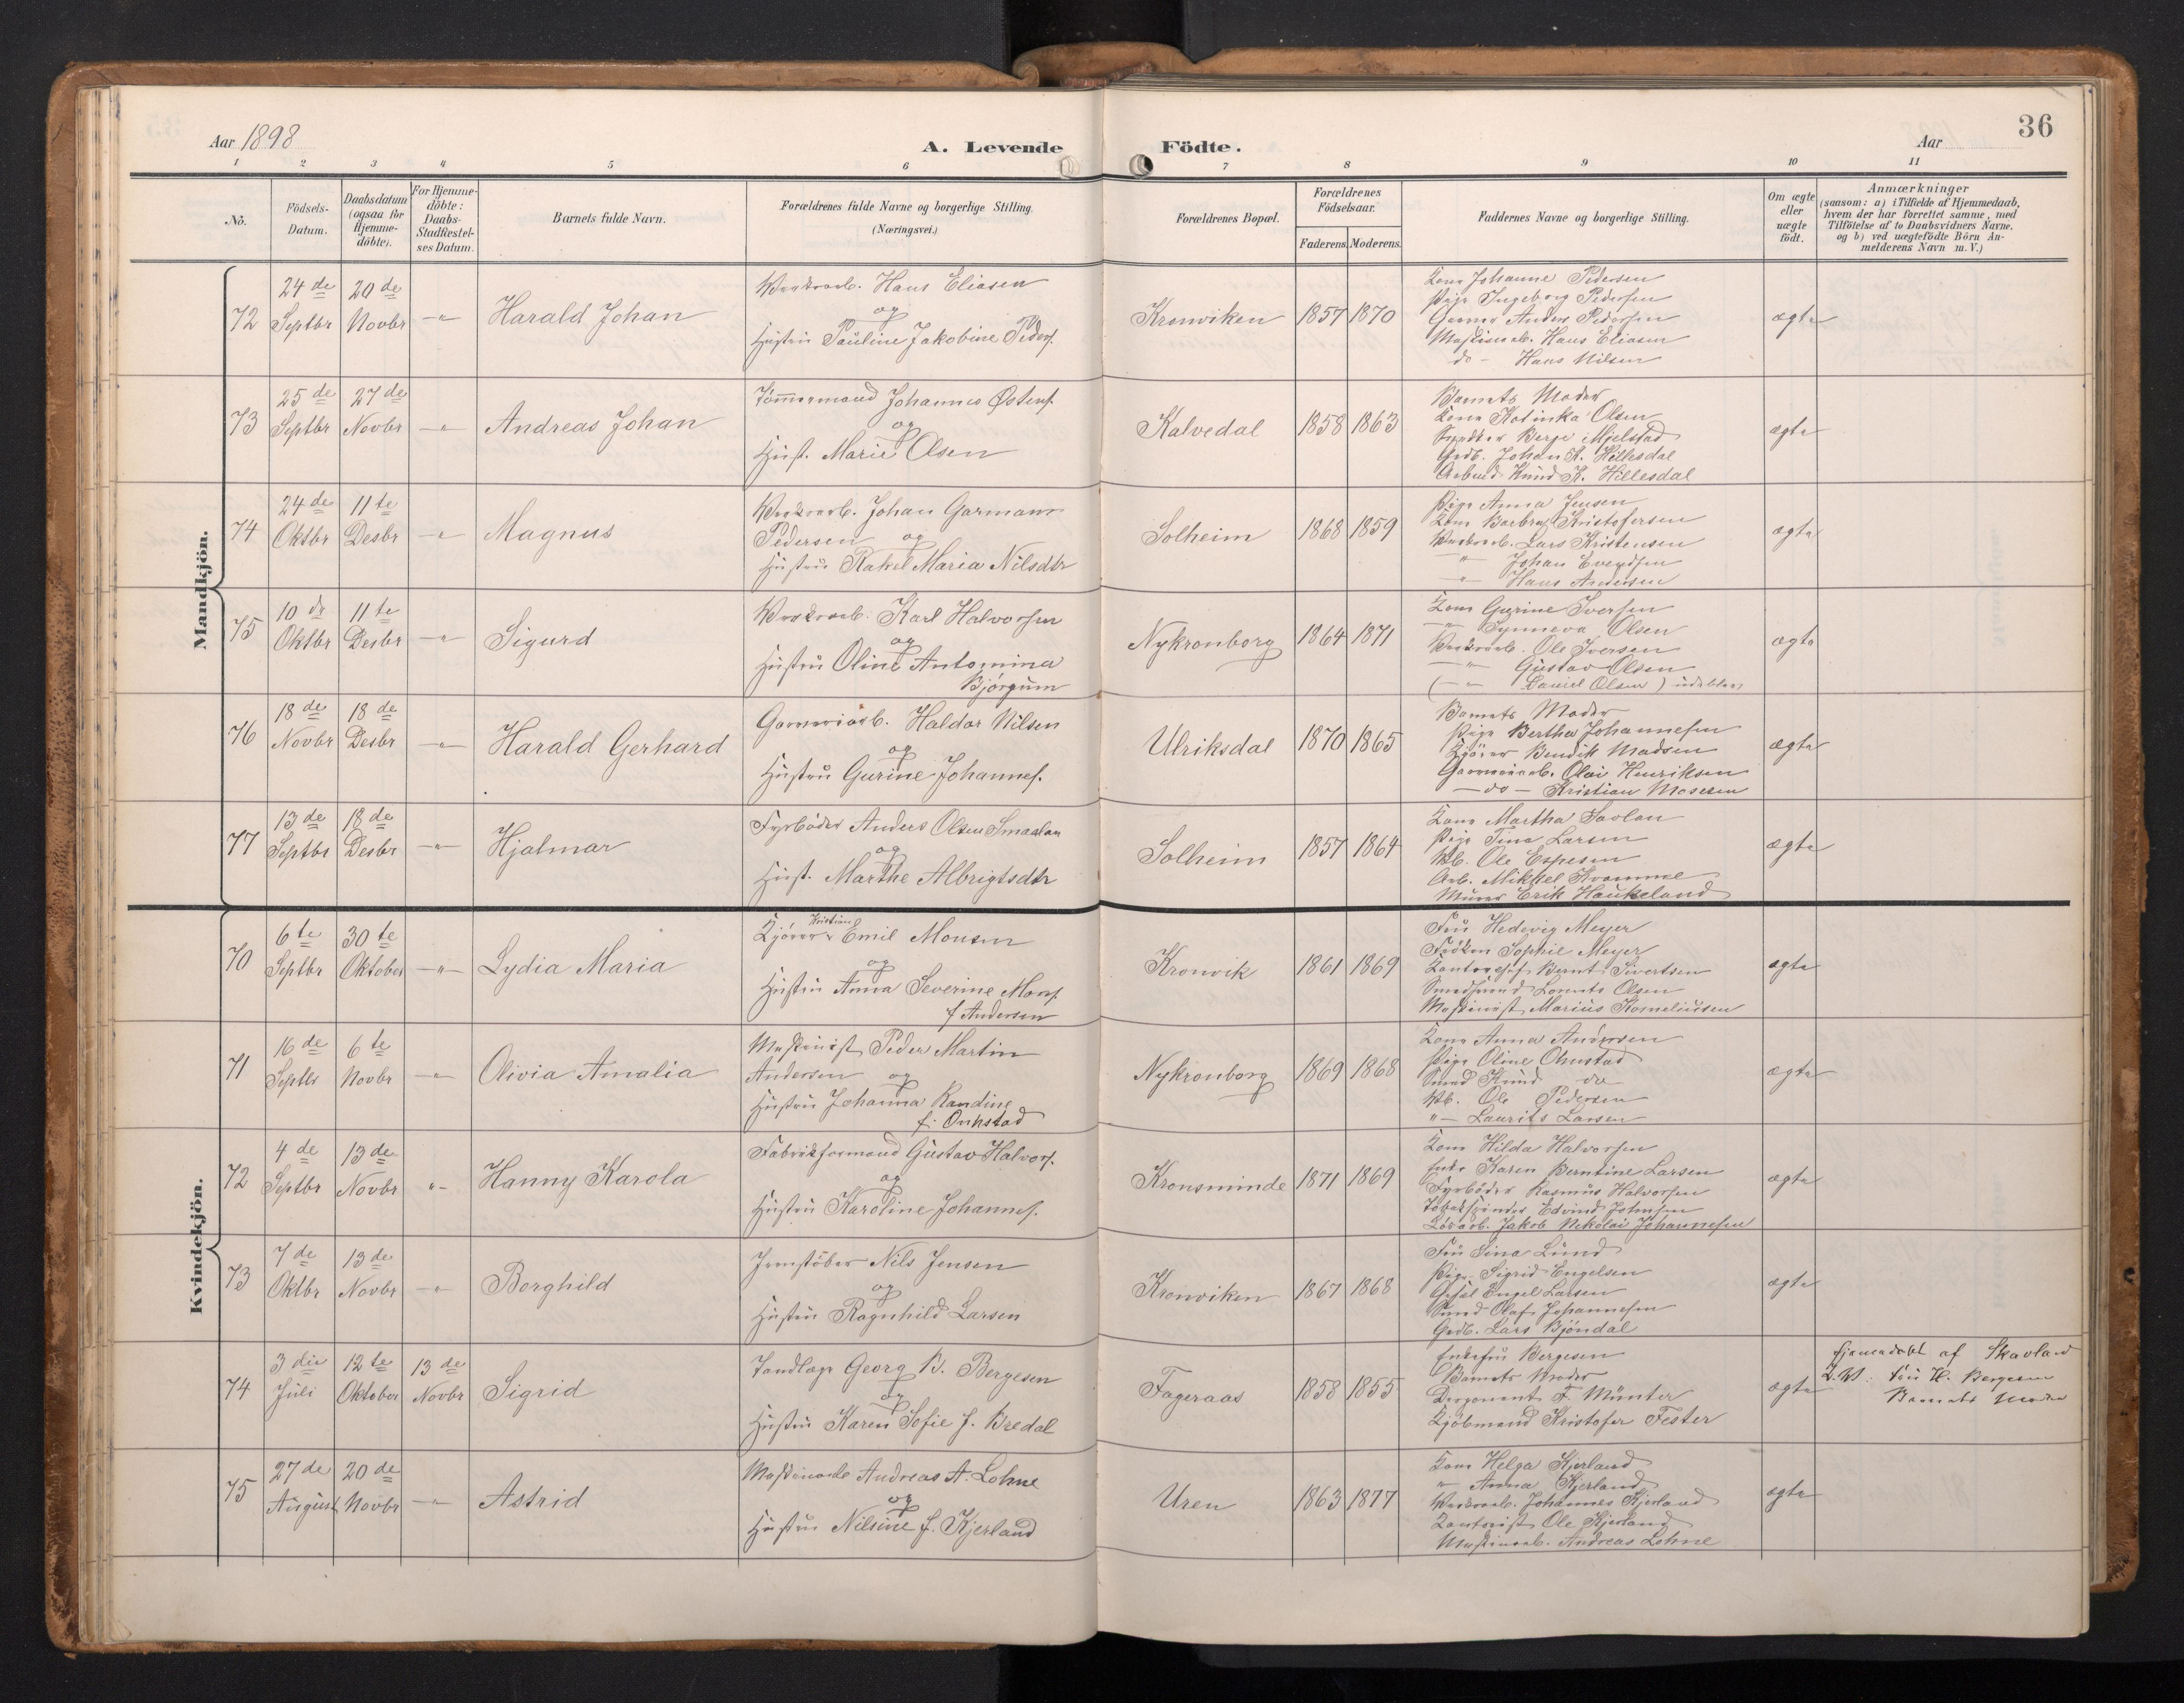 Aar 1898
A. Levende Födte.
Aar
36
1 2 3 4 5 6 7 8 9 10 11
No.
Födsels-Datum.
Daabsdatum (ogsaa for Hjemmedöbte).
For Hjemmedöbte: Daabs-Stadfæstelses Datum.
Barnets fulde Navn.
Forældrenes fulde Navne og borgerlige Stilling.
(Næringsvei.)
Forældrenes Bopæl.
Forældrenes Födselsaar.
Faderens. Moderens.
Faddernes Navne og borgerlige Stilling.
Om ægte eller uægte födt.
Anmærkninger
(saasom: a) i Tilfælde af Hjemmedaab,
hvem der har forrettet samme, med
Tilföielse af to Daabsvidners Navne,
og b) ved uægtefödte Börn An-
melderens Navn m. V.)
Mandkjön.
72 24de Septbr 20de Novbr -"- Harald Johan
Hans Eliasen
og
Hustru Pauline Jakobine Peders.
Kronviken 1857 1870
Kone Johanne Pedersen
Pige Ingeborg Pedersen
Anders Pedersen
Maskinarb. Hans Eliasen
do - Hans Nilsen
ægte
73 25de Septbr 27de Novbr -"- Andreas Johan
Tømmermand Johannes Østens.
og
Hust. Marie Olsen
Kalvedal 1858 1863
Barnets Moder
Kone Katinka Olsen
Berge Mjelstad
Grdb. Johan K. Hillesdal
Knud K. Hillesdal
ægte
74 24de Oktbr 11te Desbr -"- Magnus
Johan Garmann
Pedersen og
Hustru Rakel Maria Nilsdtr
Solheim 1868 1859
Pige Anna Jensen
Kone Barbra Kristofersen
Lars Kristensen
" Johan Evendsen
" Hans Andersen
ægte
75 10de Oktbr 11te Desbr -"- Sigurd
Karl Halvorsen
og
Hustru Oline Antomina
Bjørgum
Nykronborg 1864 1871
Kone Gurine Iversen
-"- Synneva Olsen
Ole Iversen
-"- Gustav Olsen
(-"- Daniel Olsen) udeblev
ægte
76 18de Novbr 18de Desbr -"- Harald Gerhard
Garveriarb. Haldor Nilsen
og
Hustru Gurine Johannes.
Ulriksdal 1870 1865
Barnets Moder
Pige Bertha Johannesen
Bendik Madsen
Garveriarb. Olai Henriksen
- do - Kristian Mosesen
ægte
77 13de Septbr 18de Desbr -"- Hjalmar
Fyrbøder Anders Olsen Smaalan
og
Hust. Marthe Albrigtsdtr
Solheim 1857 1864
Kone Martha
Pige Tina Larsen
Ole Espesen
Arb. Mikkel Kvamme
Murer Erik Haukeland
ægte
Kvindekjön.
70 6te Septbr 30te Oktober -"- Lydia Maria
Kristian
Kjører Emil Monsen
og
Hustru Anna Severine Mons.
f Andersen
Kronvik 1861 1869
Fru Hedevig Meyer
Frøken Sophie Meyer
Bernt Sivertsen
Olsen
Maskinist Marius Korneliussen
ægte
71 16de Septbr 6te Novbr -"- Olivia Amalia
Maskinist Peder Martin
Andersen og
Hustru Johanna Randine
f. Onkstad
Nykronborg 1869 1868
Kone Anna Andersen
Pige Oline
Smed Knud do
Ole Pedersen
" - Laurits Larsen
ægte
72 4de Septbr 13de Novbr "- Hanny Karola
Fabrikformand Gustav Halvors.
og
Hustru Karoline Johannes.
Kronsminde 1871 1869
Kone Hilda Halvorsen
Enke Karen Berntine Larsen
Fyrbøder Rasmus Halvorsen
Edvind Johnsen
Jakob Nikolai Johannesen
ægte
73 7de Oktbr 13de Novbr -"- Borghild
Jernstøber Nils Jensen
og
Hustru Ragnhild Larsen
Kronviken 1867 1868
Fru Lina Lund
Pige Sigrid Engelsen
Engel Larsen
Smed Olaf Johannesen
Grdb. Lars Bjöndal
ægte
74 3die Juli 12te Oktober 13de Novbr Sigrid
Tandlæge Georg B. Bergesen
og
Hustru Karen Sofie f. Bredal
Fageraas 1858 1855
Enkefru Bergesen
Barnets Moder
F. Münter
Kjøbmand Kristofer Fester
ægte
Hjemmedøbt af Skavland
D.V: Fru H. Bergesen
Barnets Moder
75 27de August 20de Novbr -"- Astrid
Andreas A. Lohne
og
Hustru Nilsine f. Kjerland
Uren 1863 1877
Kone Helga Kjerland
" Anna Kjerland
Johannes Kjerland
Kontorist Ole Kjerland
Maskinarb. Andreas Lohne
ægte